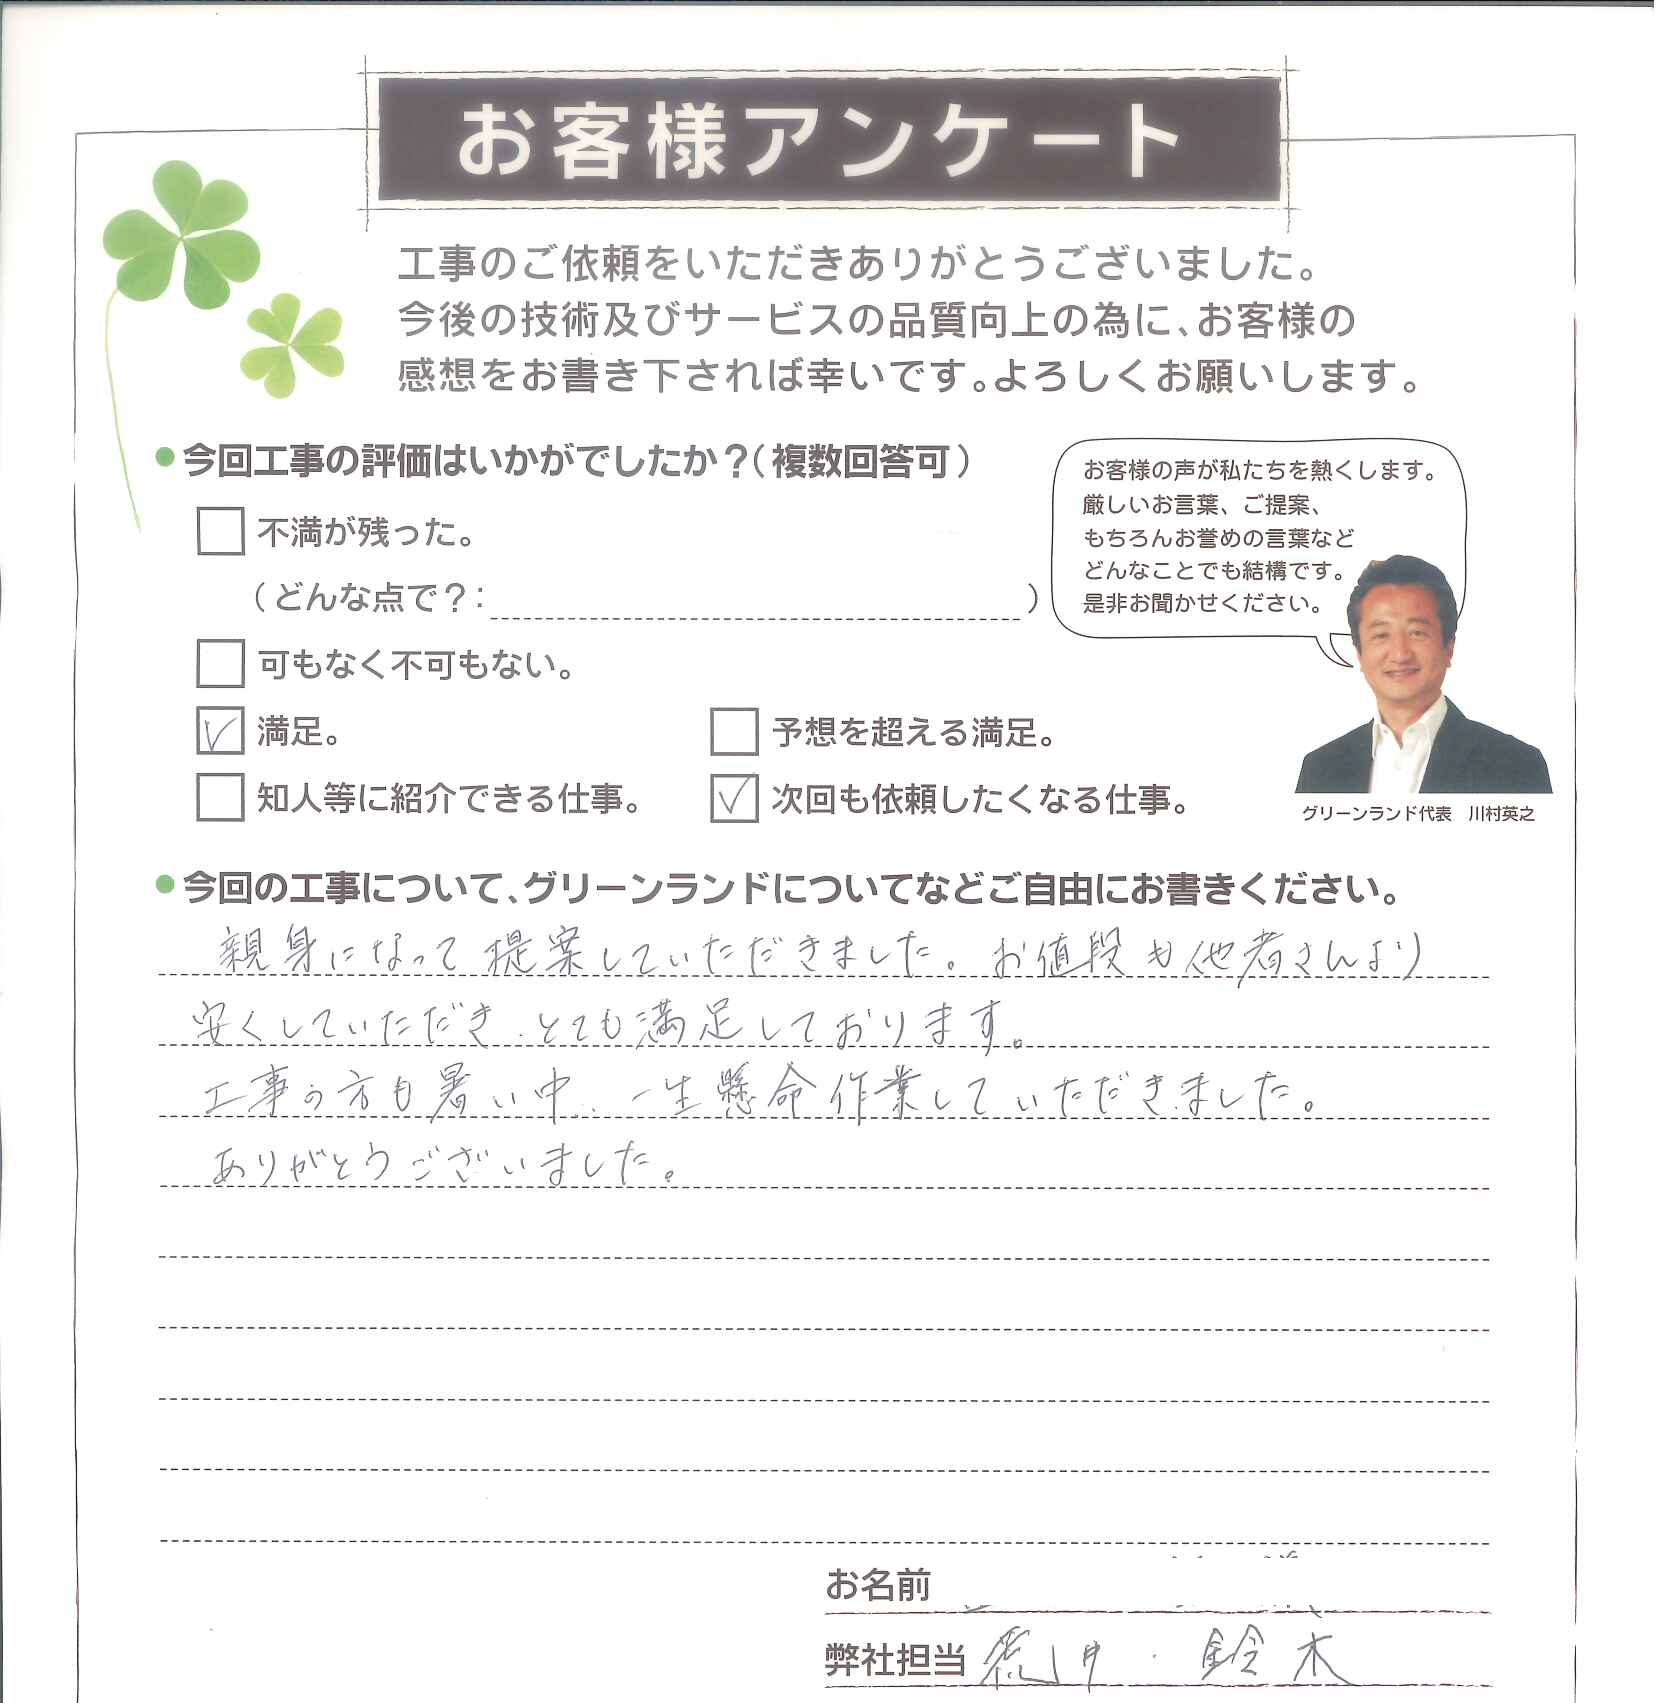 お客様アンケート
工事のご依頼をいただきありがとうございました。
今後の技術及びサービスの品質向上の為に、お客様の
感想をお書き下されば幸いです。よろしくお願いします。
今回工事の評価はいかがでしたか？（複数回答可）
不満が残った。
（どんな点で？： ）
可もなく不可もない。
満足。
予想を超える満足。
知人等に紹介できる仕事。
次回も依頼したくなる仕事。
お客様の声が私たちを熱くします。
厳しいお言葉、ご提案、
もちろんお誉めの言葉など
どんなことでも結構です。
是非お聞かせください。
グリーンランド代表　川村英之
今回の工事について、グリーンランドについてなどご自由にお書きください。
親身になって提案していただきました。お値段も他者さんより
安くしていただき、とても満足しております。
工事の方も暑い中、一生懸命作業していただきました。
ありがとうございました。
お名前
弊社担当 荒井・鈴木